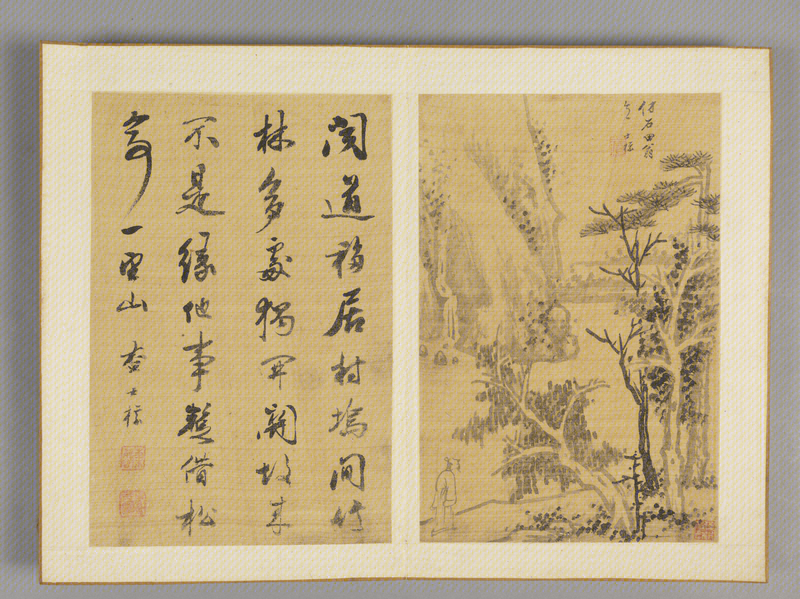 仿石田翁
意 士標
聞道移居村塢間竹
林多處獨開關故来
不是緣他事暫借松
亭一望山 查士標